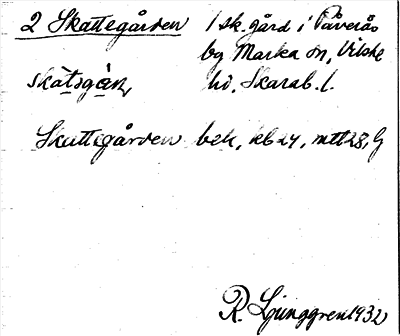 2 Skattegården 1 sk. gård i Påverås
by Marka sn, Vilske
skàtsgàn, hd, Skarab. l.
Skattegården bek, kbl 24, mtt 28, G
R. Ljunggren 1932